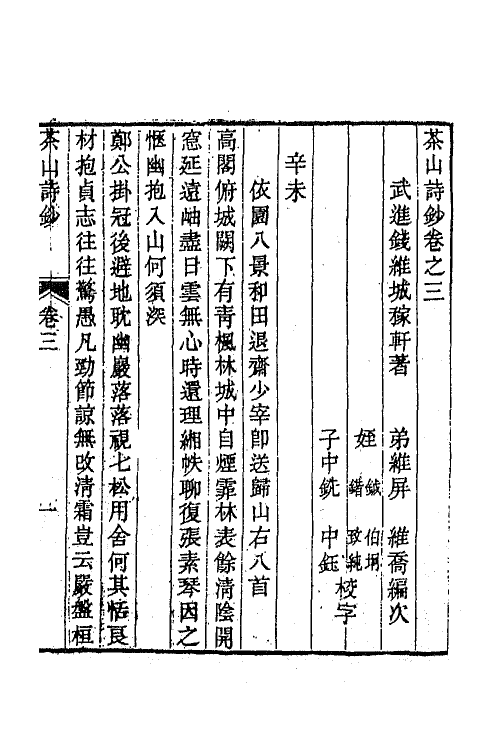 茶山詩鈔卷之三
武進錢維城稼軒著　弟維屏　維喬編次
姪　鉞　伯坰
鐠　致純　校字
子中銑　中鈺
辛未
依園八景和田退齋少宰即送歸山右八首
高閣俯城闕下有青楓林城中自煙霏林表餘清陰開
窓延遠岫盡日雲無心時還理緗帙聊復張素琴因之
愜幽抱入山何須深
鄭公掛冠後避地耽幽巖落落視七松用舍何其恬良
材抱貞志往往驚愚凡勁節諒無改清霜豈云嚴盤桓
茶山詩鈔　卷三　一